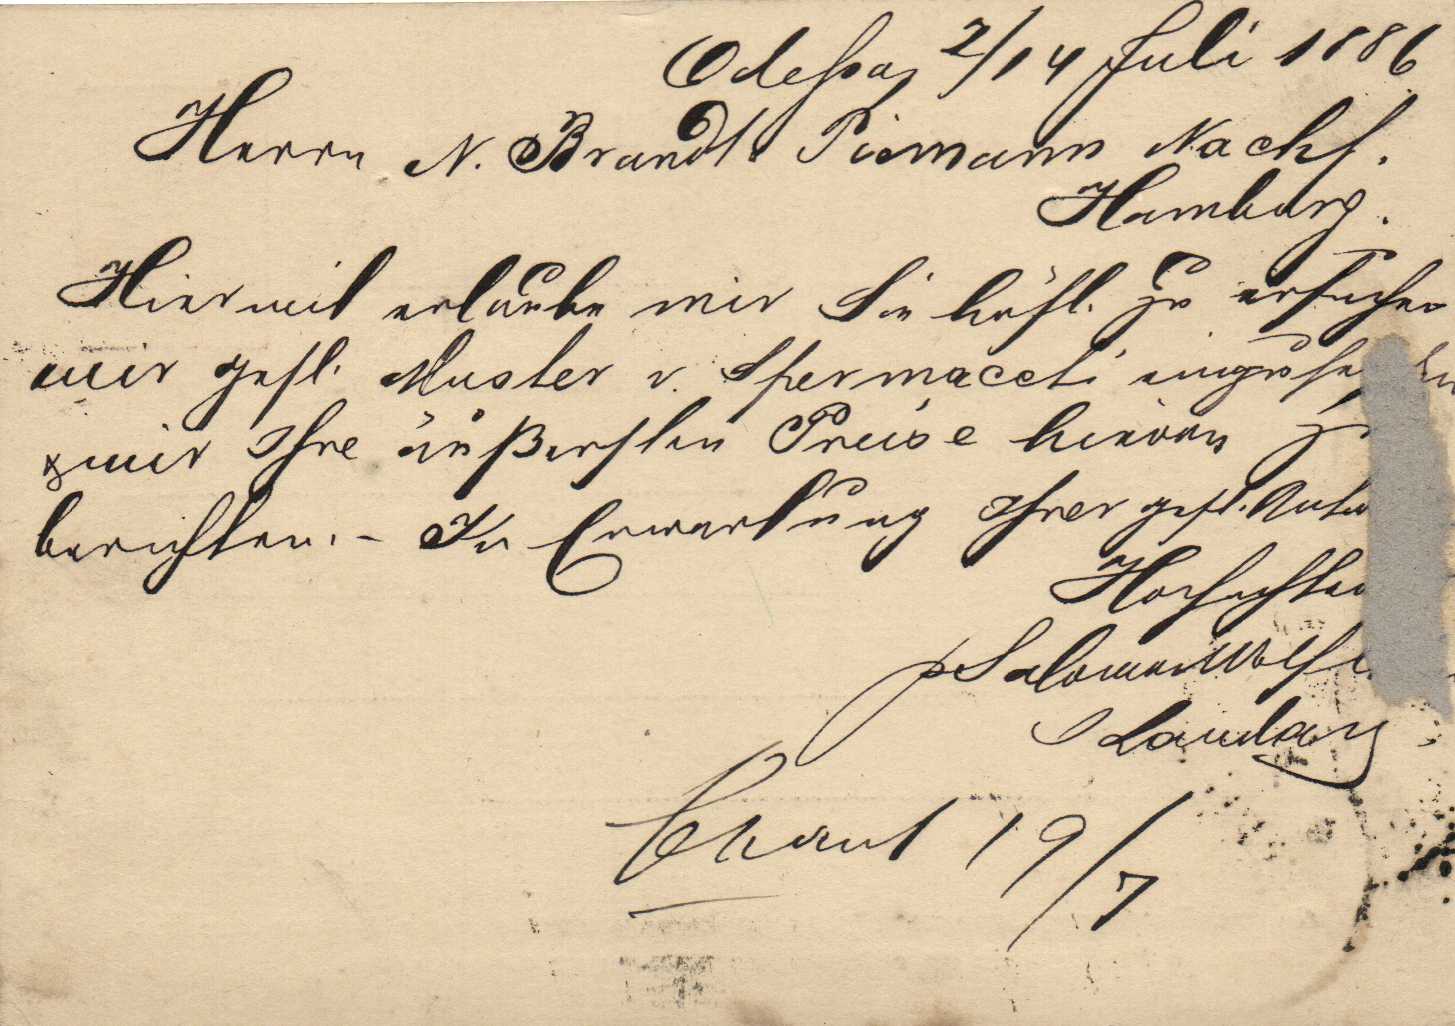 Odessa, 2/14 Juli 1886
Herrn N. Brandt Nachf.
Hamburg.
Hiermit erlaube mir Sie höfl. zu ersuchen
mir gefl. Muster v. Spermaceti
& mir Ihre äußersten Preise hievon zu
berichten. – In Erwartung Ihrer gefl.
p Salomon
Landau
19/7